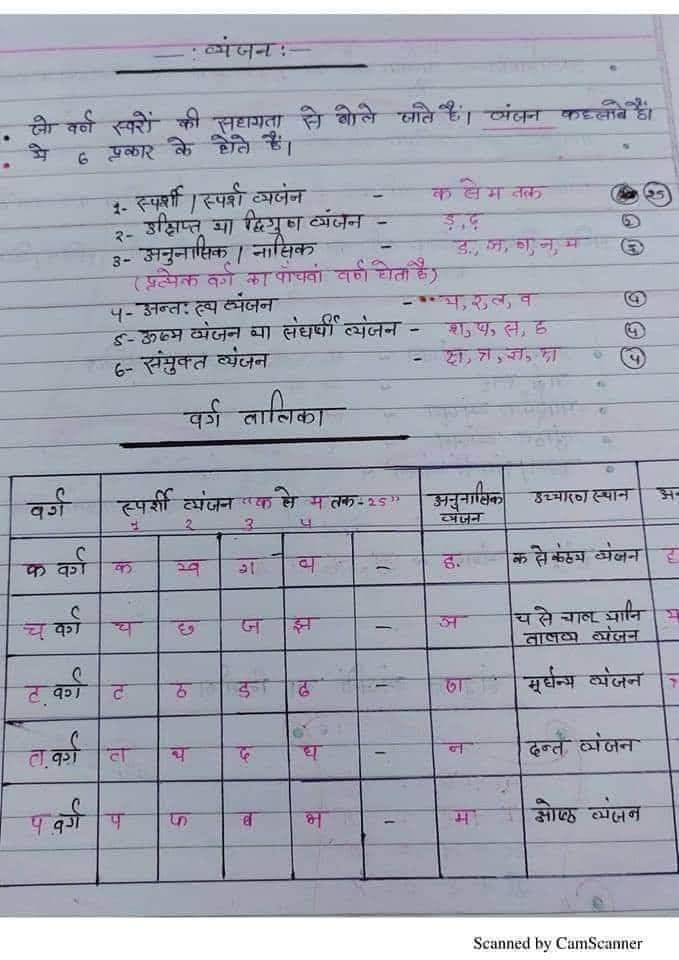 —: व्यंजन :—
• जो वर्ण स्वरों की सहायता से बोले जाते हैं। व्यंजन कहलाते हैं।
• ये 6 प्रकार के होते हैं।
१- स्पर्शी / स्पर्श व्यजंन - क से म तक 25
२- उत्क्षिप्त या द्विगुण व्यंजन - ड़, ढ़ 2
३- अनुनासिक / नासिक - ङ, ञ, ण, न, म 5
(प्रत्येक वर्ग का पाँचवां वर्ण होता है)
४- अन्त: स्थ व्यंजन - य, र, ल, व ४
५- ऊष्म व्यंजन या संघर्षी व्यंजन - श, ष, स, ह ४
६- संयुक्त व्यंजन - क्ष, त्र, ज्ञ, श्र ४
वर्ग तालिका
वर्ग स्पर्शी व्यंजन "क से म तक-25" अनुनासिक व्यंजन उच्चारण स्थान
1 2 3 ४
क वर्ग क ख ग घ - ङ क से कंठ्य व्यंजन
च वर्ग च छ ज झ - ञ च से चालू यानि तालव्य व्यंजन
ट वर्ग ट ठ ड ढ - ण मूर्धन्य व्यंजन
त वर्ग त थ द ध - न दन्त व्यंजन
प वर्ग प फ ब भ - म ओष्ठ व्यंजन
Scanned by CamScanner